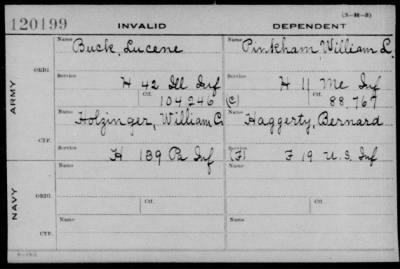 (3-36-3)
120199 INVALID DEPENDENT
ARMY
ORIG.
Name
Buck, Lucene
Name
Pinkham, William L.
Service
H 42 Ill Inf
Service
H 11 Me Inf
Ctf.
104,246
(C)
Ctf.
88,767
CTF.
Name
Holzinger, William C.
Name
Haggerty, Bernard
Service
H 139 Pa Inf
Service
(F) F 19 U.S. Inf
NAVY
ORIG.
Name
Name
CTF.
Name
Name